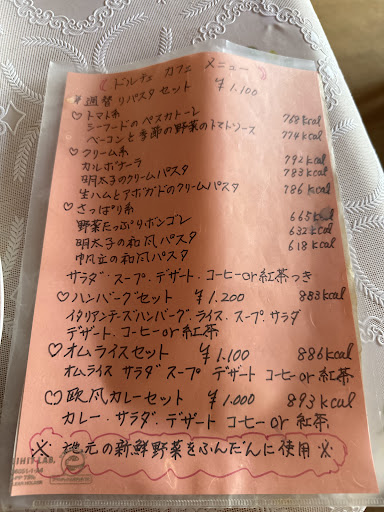 ドルチェ カフェ メニュー
♡週替りパスタセット ¥1.100
♡トマト系
シーフードのペスカトーレ 768kcal
ベーコンと季節の野菜のトマトソース 774kcal
♡クリーム系
カルボナーラ 792kcal
明太子のクリームパスタ 783kcal
生ハムとアボガドのクリームパスタ 786kcal
♡さっぱり系
野菜たっぷりボンゴレ 665kcal
明太子の和風パスタ 632kcal
帆立の和風パスタ 618kcal
サラダ・スープ・デザート・コーヒーor紅茶つき
♡ハンバーグセット ¥1.200 883kcal
イタリアンチーズハンバーグ.ライス.スープ.サラダ
デザート.コーヒーor紅茶
♡オムライスセット ¥1.100 886kcal
オムライス サラダ スープ デザート コーヒーor紅茶
♡欧風カレーセット ¥1.000 893kcal
カレー・サラダ・デザート コーヒーor紅茶
※ 地元の新鮮野菜をふんだんに使用 ※